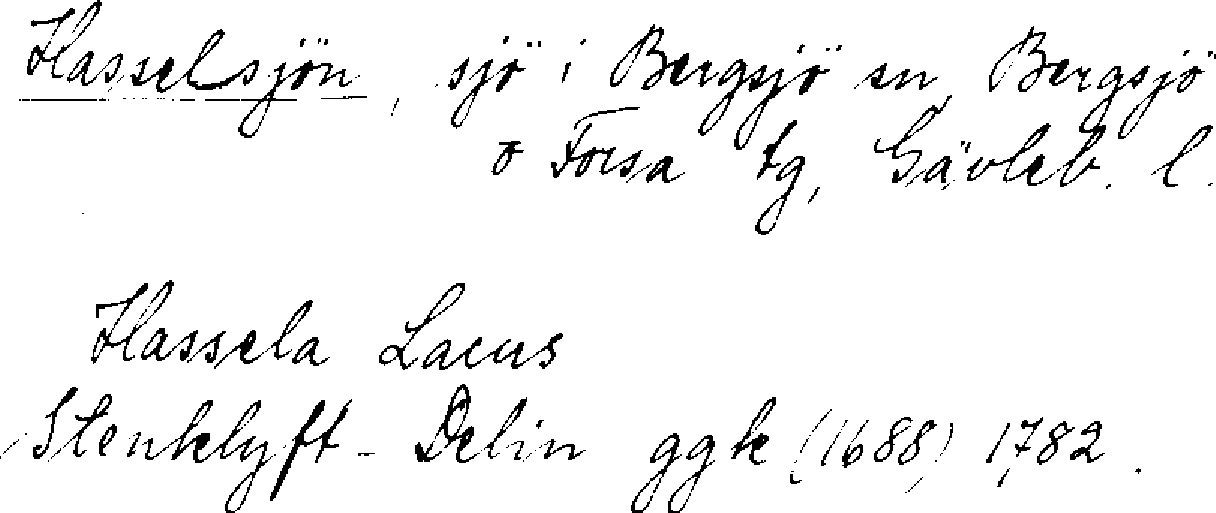 Hasselsjön, sjö i Bergsjö sn, Bergsjö
o Forsa tg, Gävleb. l.
Hassela Lacus
Stenklyft-Delin ggk (1688) 1782.